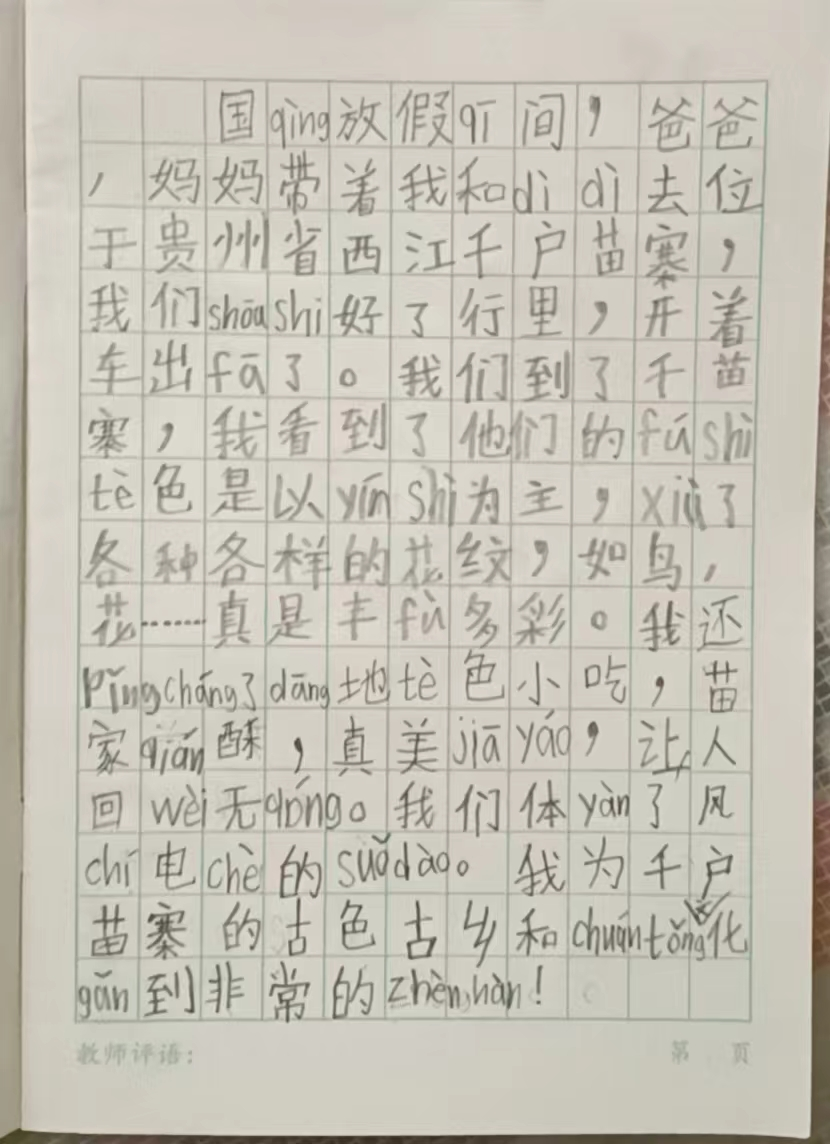 国qìng放假qī间，爸爸
，妈妈带着我和dì dì去位
于贵州省西江千户苗寨，
我们shōushi好了行里，开着
车出fā了。我们到了千苗
寨，我看到了他们的fúshì
tè色是以yínshì为主，xiù了
各种各样的花纹，如鸟，
花……真是丰fù多彩。我还
Pǐngcháng了dāng地tè色小吃，苗
家qián酥，真美jiā yáo，让人
回wèi无qióng。我们体yàn了风
chí电chè的suǒdào。我为千户
苗寨的古色古乡和chuántǒng文化
gǎn到非常的zhènhàn！
教师评语：
第 页